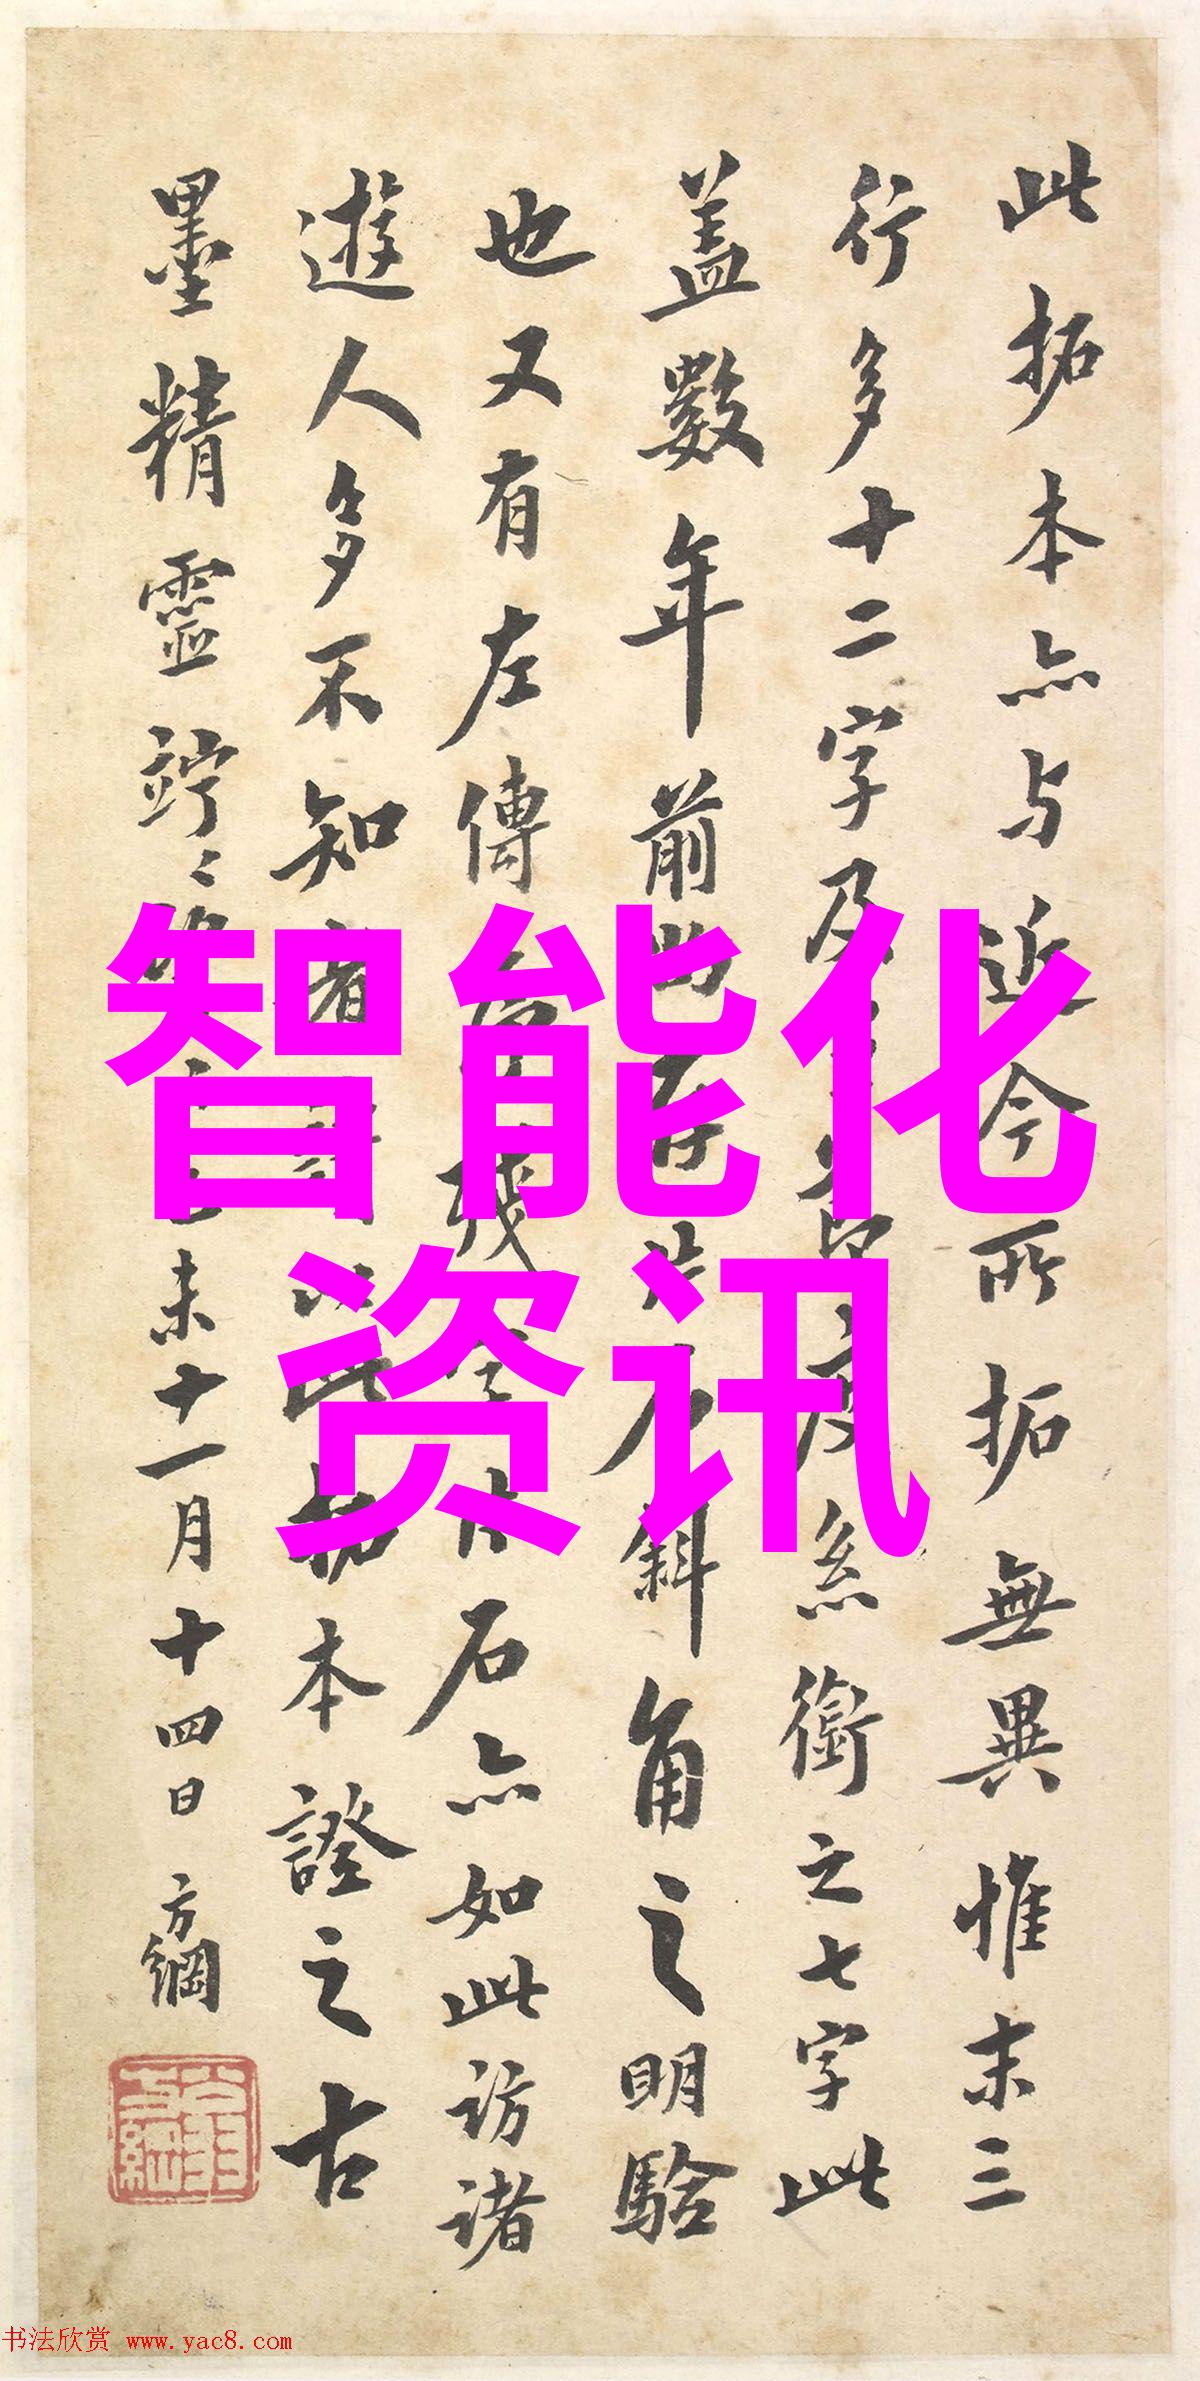 此拓本亦与近今所拓無異惟末三
行多十二字及系銜之七字此
蓋數年前斜角之明驗
也又有左傳殘石亦如此訪諸
遊人多不知者此拓本證之古
墨精靈未十一月十四日方綱
智能化
资讯
书法欣赏 www.yac8.com